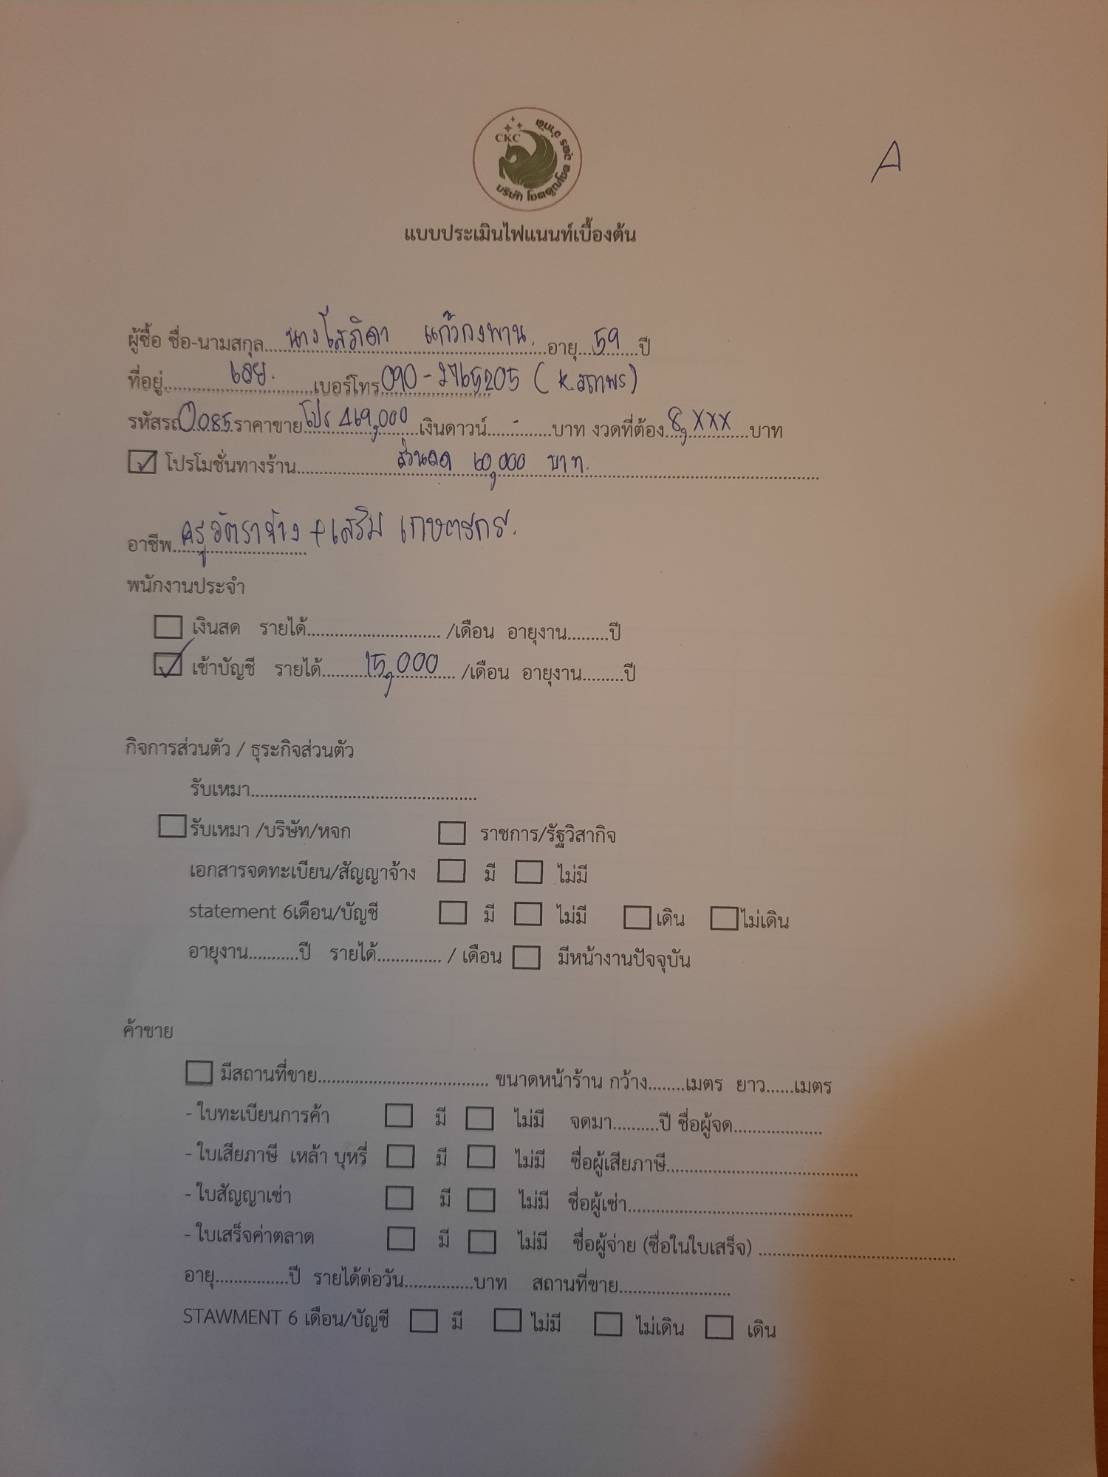 CKC
บริษัท โชคคูณโชค
A
แบบประเมินไฟแนนท์เบื้องต้น
ผู้ซื้อ ชื่อ-นามสกุล นางโสภิดา แก้วกงพาน อายุ 59 ปี
ที่อยู่ เลย. เบอร์โทร 090-2765205 (K.สถาพร)
รหัสรถ 0085 ราคาขาย โปร 469,000 เงินดาวน์ - บาท งวดที่ต้อง 8,xxx บาท
โปรโมชั่นทางร้าน ส่วนลด 60,000 บาท.
อาชีพ ครูอัตราจ้าง + เสริม เกษตรกร.
พนักงานประจำ
เงินสด รายได้ /เดือน อายุงาน ปี
เข้าบัญชี รายได้ 15,000 /เดือน อายุงาน ปี
กิจการส่วนตัว / ธุระกิจส่วนตัว
รับเหมา
รับเหมา /บริษัท/หจก ราชการ/รัฐวิสากิจ
เอกสารจดทะเบียน/สัญญาจ้าง มี ไม่มี
statement 6เดือน/บัญชี มี ไม่มี เดิน ไม่เดิน
อายุงาน ปี รายได้ / เดือน มีหน้างานปัจจุบัน
ค้าขาย
มีสถานที่ขาย ขนาดหน้าร้าน กว้าง เมตร ยาว เมตร
- ใบทะเบียนการค้า มี ไม่มี จดมา ปี ชื่อผู้จด
- ใบเสียภาษี เหล้า บุหรี่ มี ไม่มี ชื่อผู้เสียภาษี
- ใบสัญญาเช่า มี ไม่มี ชื่อผู้เช่า
- ใบเสร็จค่าตลาด มี ไม่มี ชื่อผู้จ่าย (ชื่อในใบเสร็จ)
อายุ ปี รายได้ต่อวัน บาท สถานที่ขาย
STAWMENT 6 เดือน/บัญชี มี ไม่มี ไม่เดิน เดิน